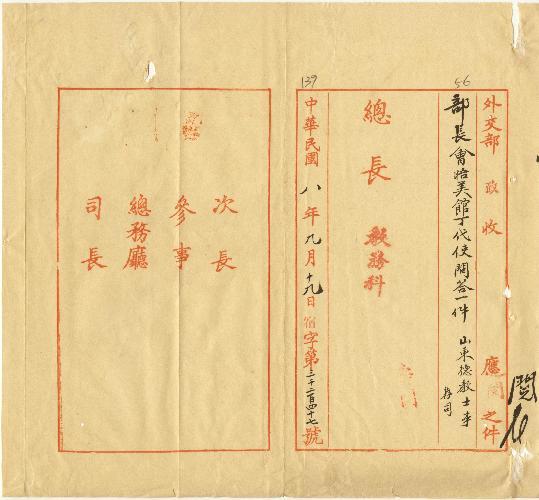 56
外交部 政 收 應閱之件
部長會晤美館丁代使問答一件 山東德教士事
存司
閱
總長 教務科
139
中華民國八年九月十九日宿字第三千二百四十七號
次長
參事
總務廳
司長